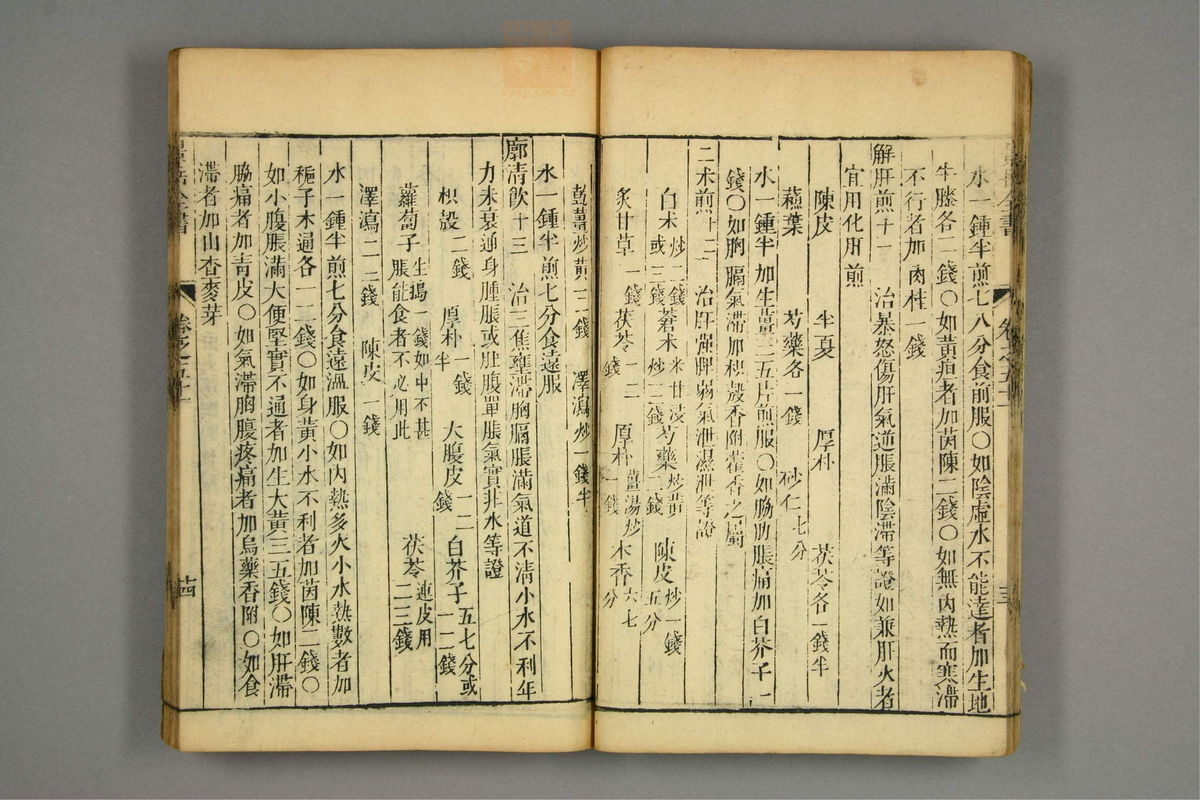 水一鍾半煎七八分食前服○如陰虛水不能達者加生地
牛膝各二錢○如黃疸者加茵陳二錢○如無內熱而寒滯
不行者加肉桂一錢
解肝煎十一 治暴怒傷肝氣逆脹滿陰滯等證如兼肝火者
宜用化肝煎
陳皮 半夏 厚朴 茯苓各一錢半
蘇葉 芍藥各一錢 砂仁七分
水一鍾半加生薑三五片煎服○如脇肋脹痛加白芥子一
錢○如胸膈氣滯加枳殼香附藿香之屬
二朮煎十二 治肝強脾弱氣泄濕泄等證
白朮炒二錢或三錢 蒼朮米泔浸炒一二錢 芍藥炒黃二錢 陳皮炒一錢五分
炙甘草一錢 茯苓一二錢 厚朴薑湯炒一錢 木香六七分
乾薑炒黃一二錢 澤瀉炒一錢半
水一鍾半煎七分食遠服
廓清飲十三 治三焦壅滯胸膈脹滿氣道不清小水不利年
力未衰通身腫脹或肚腹單脹氣實非水等證
枳殼二錢 厚朴一錢半 大腹皮一二錢 白芥子五七分或一二錢
蘿蔔子生搗一錢如中不甚脹能食者不必用此 茯苓連皮用二三錢
澤瀉二三錢 陳皮一錢
水一鍾半煎七分食遠溫服○如內熱多火小水熱數者加
梔子木通各一二錢○如身黃小水不利者加茵陳二錢○
如小腹脹滿大便堅實不通者加生大黃三五錢○如肝滯
脇痛者加青皮○如氣滯胸腹疼痛者加烏藥香附○如食
滯者加山查麥芽
全書 卷之五十一 茁